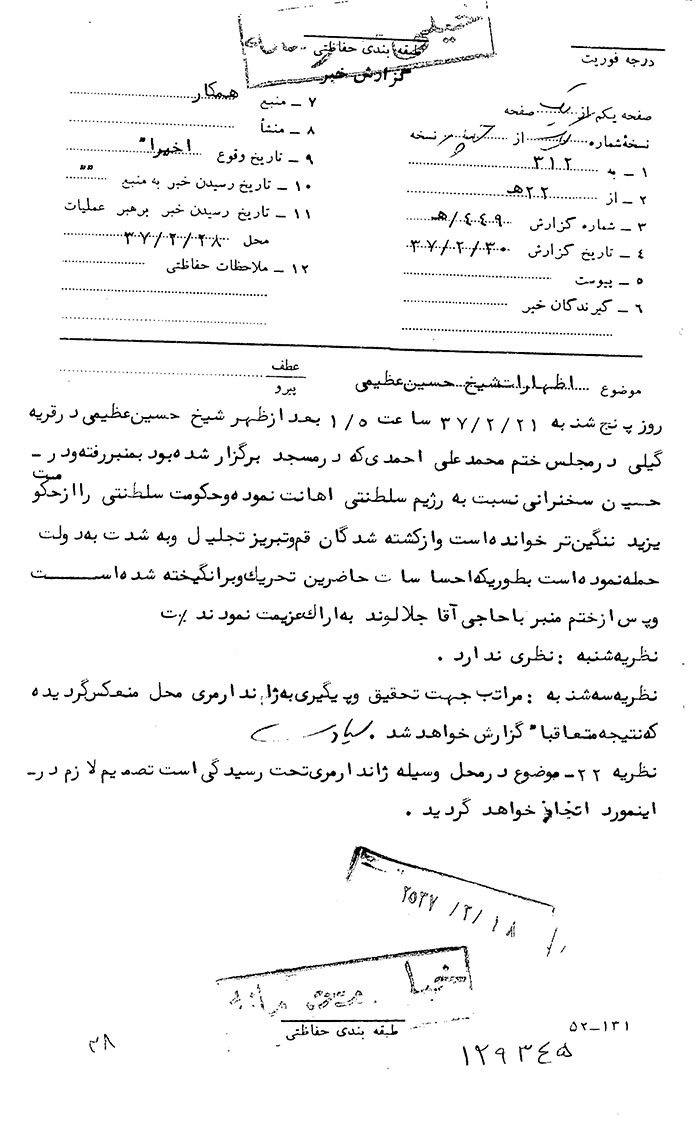 خیلی محرمانه
طبقه بندی حفاظتی
گزارش خبر
درجه فوریت
صفحه یکم از یک صفحه
نسخهٔ شماره یک از نسخه
۱ ـ به ۳۱۲
۲ ـ از ۲۲هـ
۳ ـ شماره گزارش ۴۴۹/هـ
۴ ـ تاریخ گزارش ۳۷/۲/۳۰
۵ ـ پیوست
۶ ـ گیرندگان خبر
۷ ـ منبع همکار
۸ ـ منشأ
۹ ـ تاریخ وقوع اخیرا"
۱۰ ـ تاریخ رسیدن خبر به منبع ""
۱۱ ـ تاریخ رسیدن خبر برهبر عملیات
محل ۳۷/۲/۲۸
۱۲ ـ ملاحظات حفاظتی
موضوع اظهارات شیخ حسین عظیمی
عطف
پیرو
روز پنج شنبه ۳۷/۲/۲۱ ساعت ۱/۵ بعد ازظهر شیخ حسین عظیمی در قریه
گیلی در مجلس ختم محمد علی احمدی که در مسجد برگزار شده بود بمنبر رفته و در ـ
حسین سخنرانی نسبت به رژیم سلطنتی اهانت نموده و حکومت سلطنتی را از حکومت
یزید ننگین تر خوانده است و از کشته شدگان قم و تبریز تجلیل و به شدت به دولت
حمله نموده است بطوریکه احساسات حاضرین تحریك و برانگیخته شده است
و پس از ختم منبر با حاجی آقا جلالوند به اراك عزیمت نمودند /ت
نظریه شنبه : نظری ندارد .
نظریه سه شنبه : مراتب جهت تحقیق و پیگیری به ژاندارمری محل منعکس گردیده
که نتیجه متعاقبا" گزارش خواهد شد .
نظریه ۲۲ـ موضوع در محل وسیله ژاندارمری تحت رسیدگی است تصمیم لازم در ـ
اینمورد اتخاذ خواهد گردید .
۲۵۳۷/۲/۱۸
طبقه بندی حفاظتی
۵۲ــ۱۳۱
۳۸
۱۲۹۳۴۵